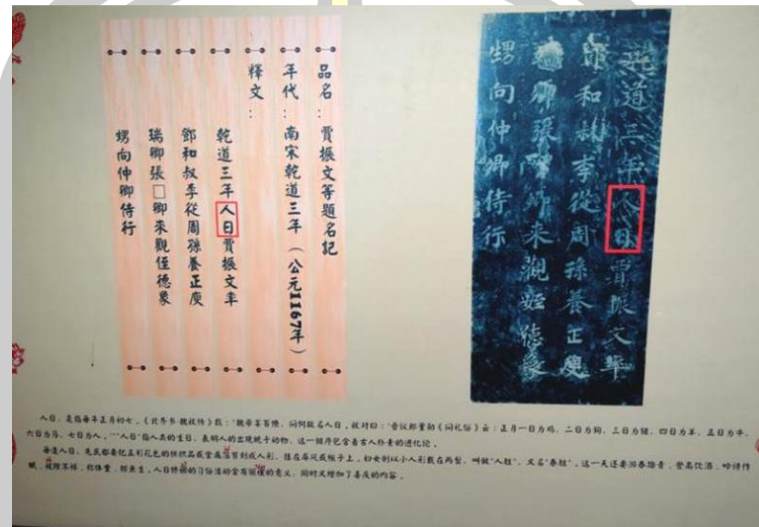 品名：賈振文等題名記
年代：南宋乾道三年（公元1167年）
釋文：
乾道三年人日賈振文率
鄧和叔李從周孫養正庾
瑞卿張□卿來觀侄德象
甥向仲卿侍行
道三年人日賈振文率
和叔李從周孫養正庾
卿張卿來觀姪德象
甥向仲卿侍行
人日，是指每年正月初七，《北齐书·魏收传》载：“魏帝宴百僚，问何故名人日，收对曰：‘晋议郎董勋《问礼俗》云：正月一日为鸡，二日为狗，三日为猪，四日为羊，五日为牛，
六日为马，七日为人，’”“人日”指人类的生日，表明人的出现晚于动物，这一排序包含着古人朴素的进化论。
每逢人日，先民都要把五彩花色的丝织品或金箔剪刻成人形，挂在屏风或帐子上，妇女则以小人形戴在两鬓，叫做“人胜”，又名“春胜”，这一天还要游春踏青，登高饮酒，吟诗作
赋，祓除不祥，称体重，释鱼生，人日特殊的习俗活动富有很强的意义，同时又增加了喜庆的内容。